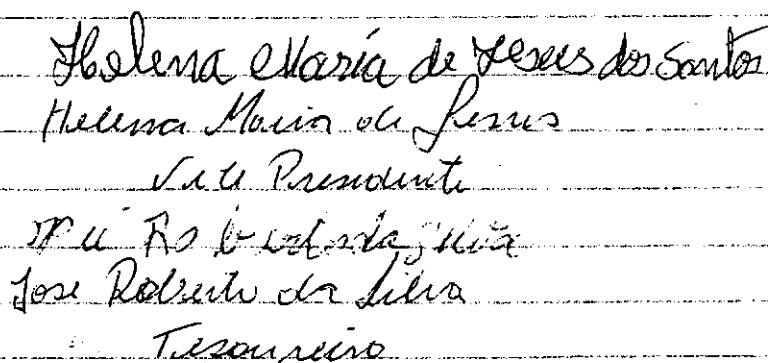 Helena María de Jesus dos Santos
Helena Maria de Jesus
Vice Presidente
Roberto da Silva
Jose Roberto da Silva
Tesoureiro